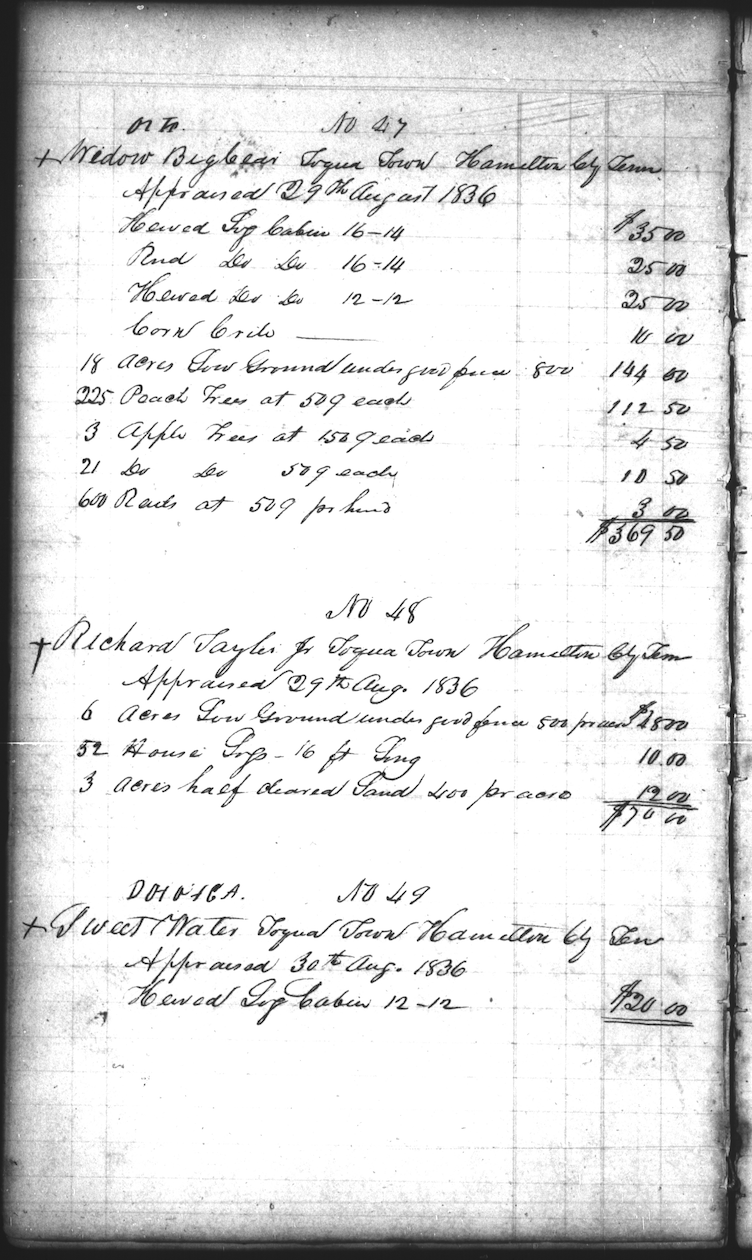 No 47
+ Widow Bigbear Toqua Town Hamilton Cty Tenn
Appraised 29th August 1836
Hewed Log Cabin 16-14 $35 00
Rnd Do Do 16-14 25 00
Hewed Do Do 12-12 25 00
Corn Crib —— 10 00
18 Acres Low Ground under good fence 800 144 00
225 Peach Trees at 50¢ each 112 50
3 Apple Trees at 150¢ each 4 50
21 Do Do 50¢ each 10 50
600 Rails at 50¢ pr hund 3 00
$369 50
No 48
+ Richard Taylor Jr Toqua Town Hamilton Cty Tenn
Appraised 29th Aug. 1836
6 Acres Low Ground under good fence 800 pr acre $48 00
52 House Logs - 16 ft Long 10.00
3 Acres half cleared Land 400 pr acre 12 00
$70 00
No 49
+ Sweet Water Toqua Town Hamilton Cty Ten
Appraised 30th Aug. 1836
Hewed Log Cabin 12-12 $20 00